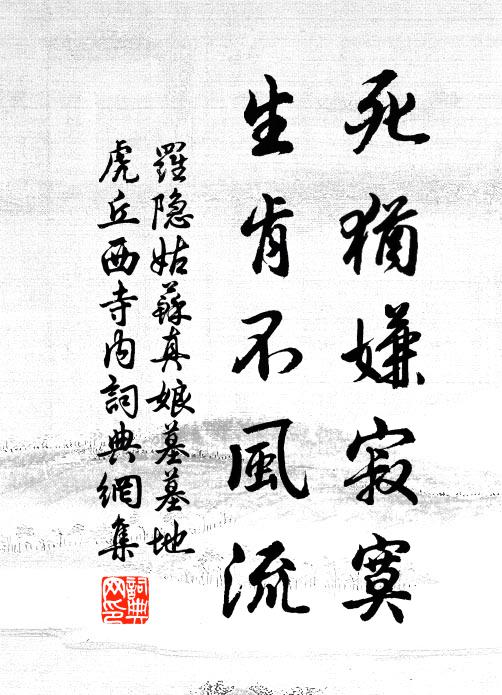 死猶嫌寂寞
生肯不風流
羅隐姑蘇真娘墓墓地
虎丘西寺内詞典網集
詞典
网印